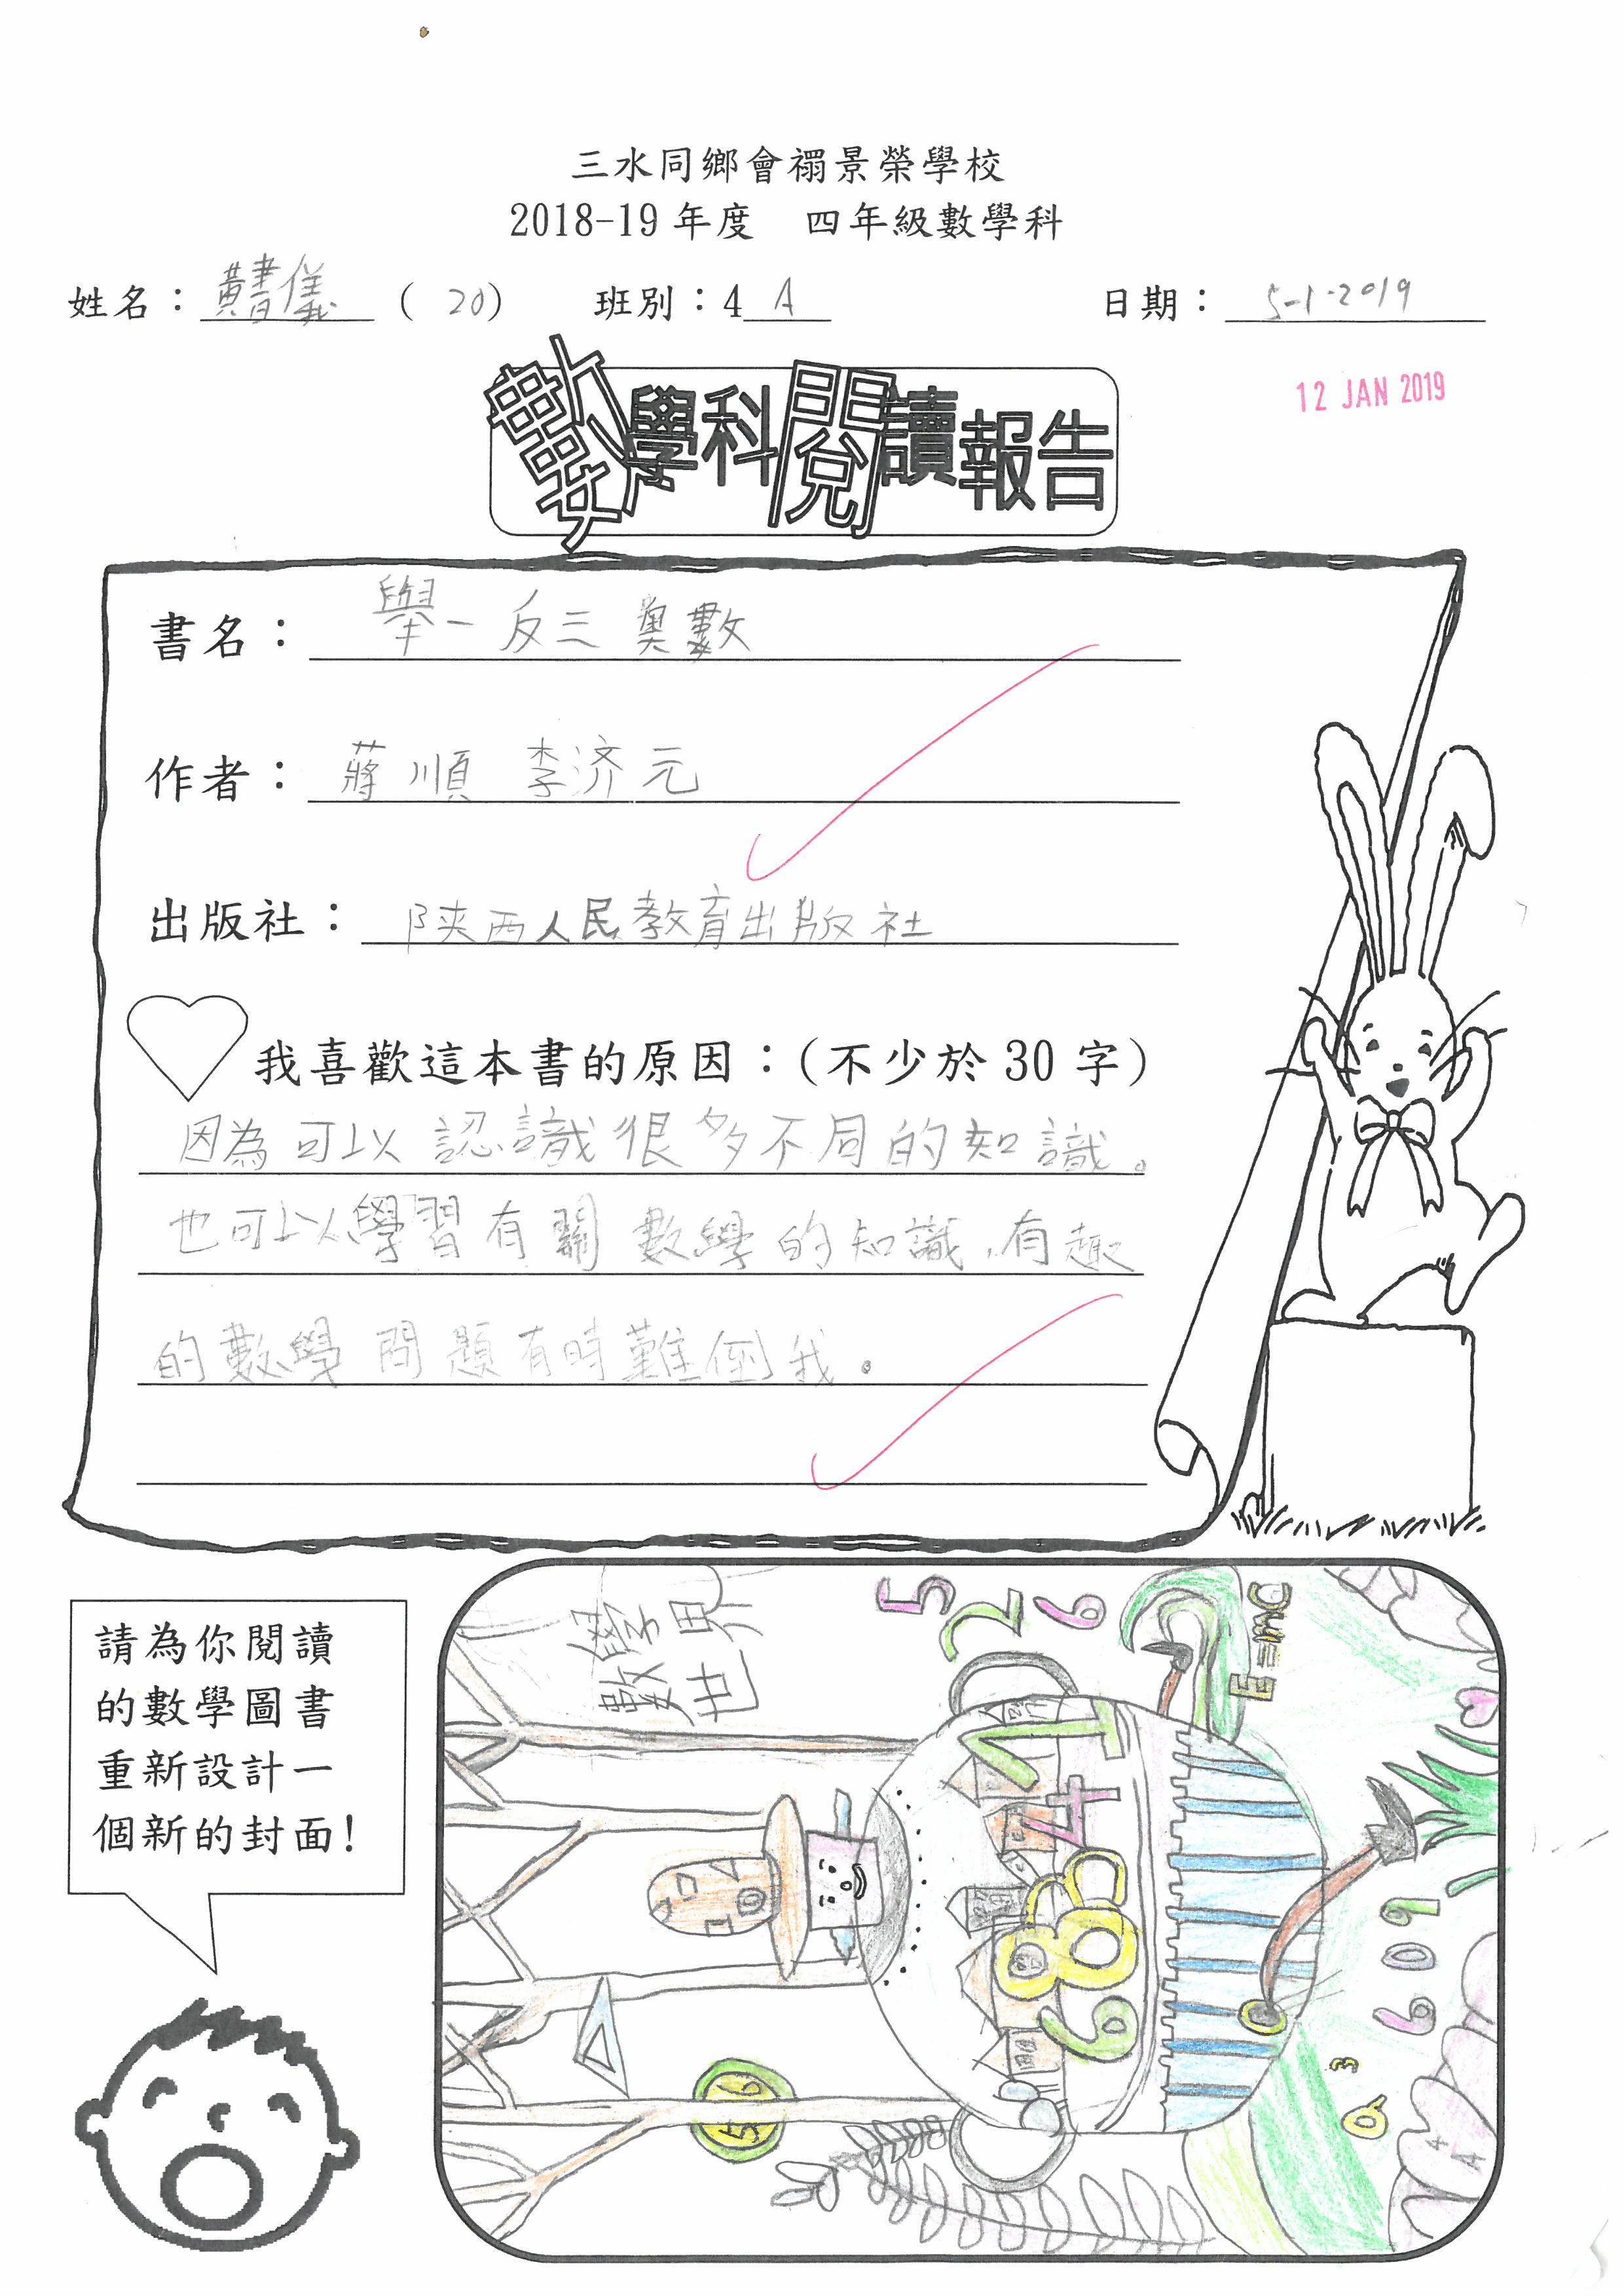 三水同鄉會禤景榮學校
2018-19 年度 四年級數學科
姓名：黃書儀 ( 20 ) 班別：4 A 日期：5-1-2019
12 JAN 2019
數學科閱讀報告
書名：舉一反三奧數
作者：蔣順 李济元
出版社：陕西人民教育出版社
我喜歡這本書的原因：(不少於 30 字)
因為可以認識很多不同的知識。
也可以學習有關數學的知識,有趣
的數學問題有時難倒我。
請為你閱讀
的數學圖書
重新設計一
個新的封面!
數學
世界
5 2 6
E=mc
1 4
8
6
9 0 6
3
0
5 6
4 A